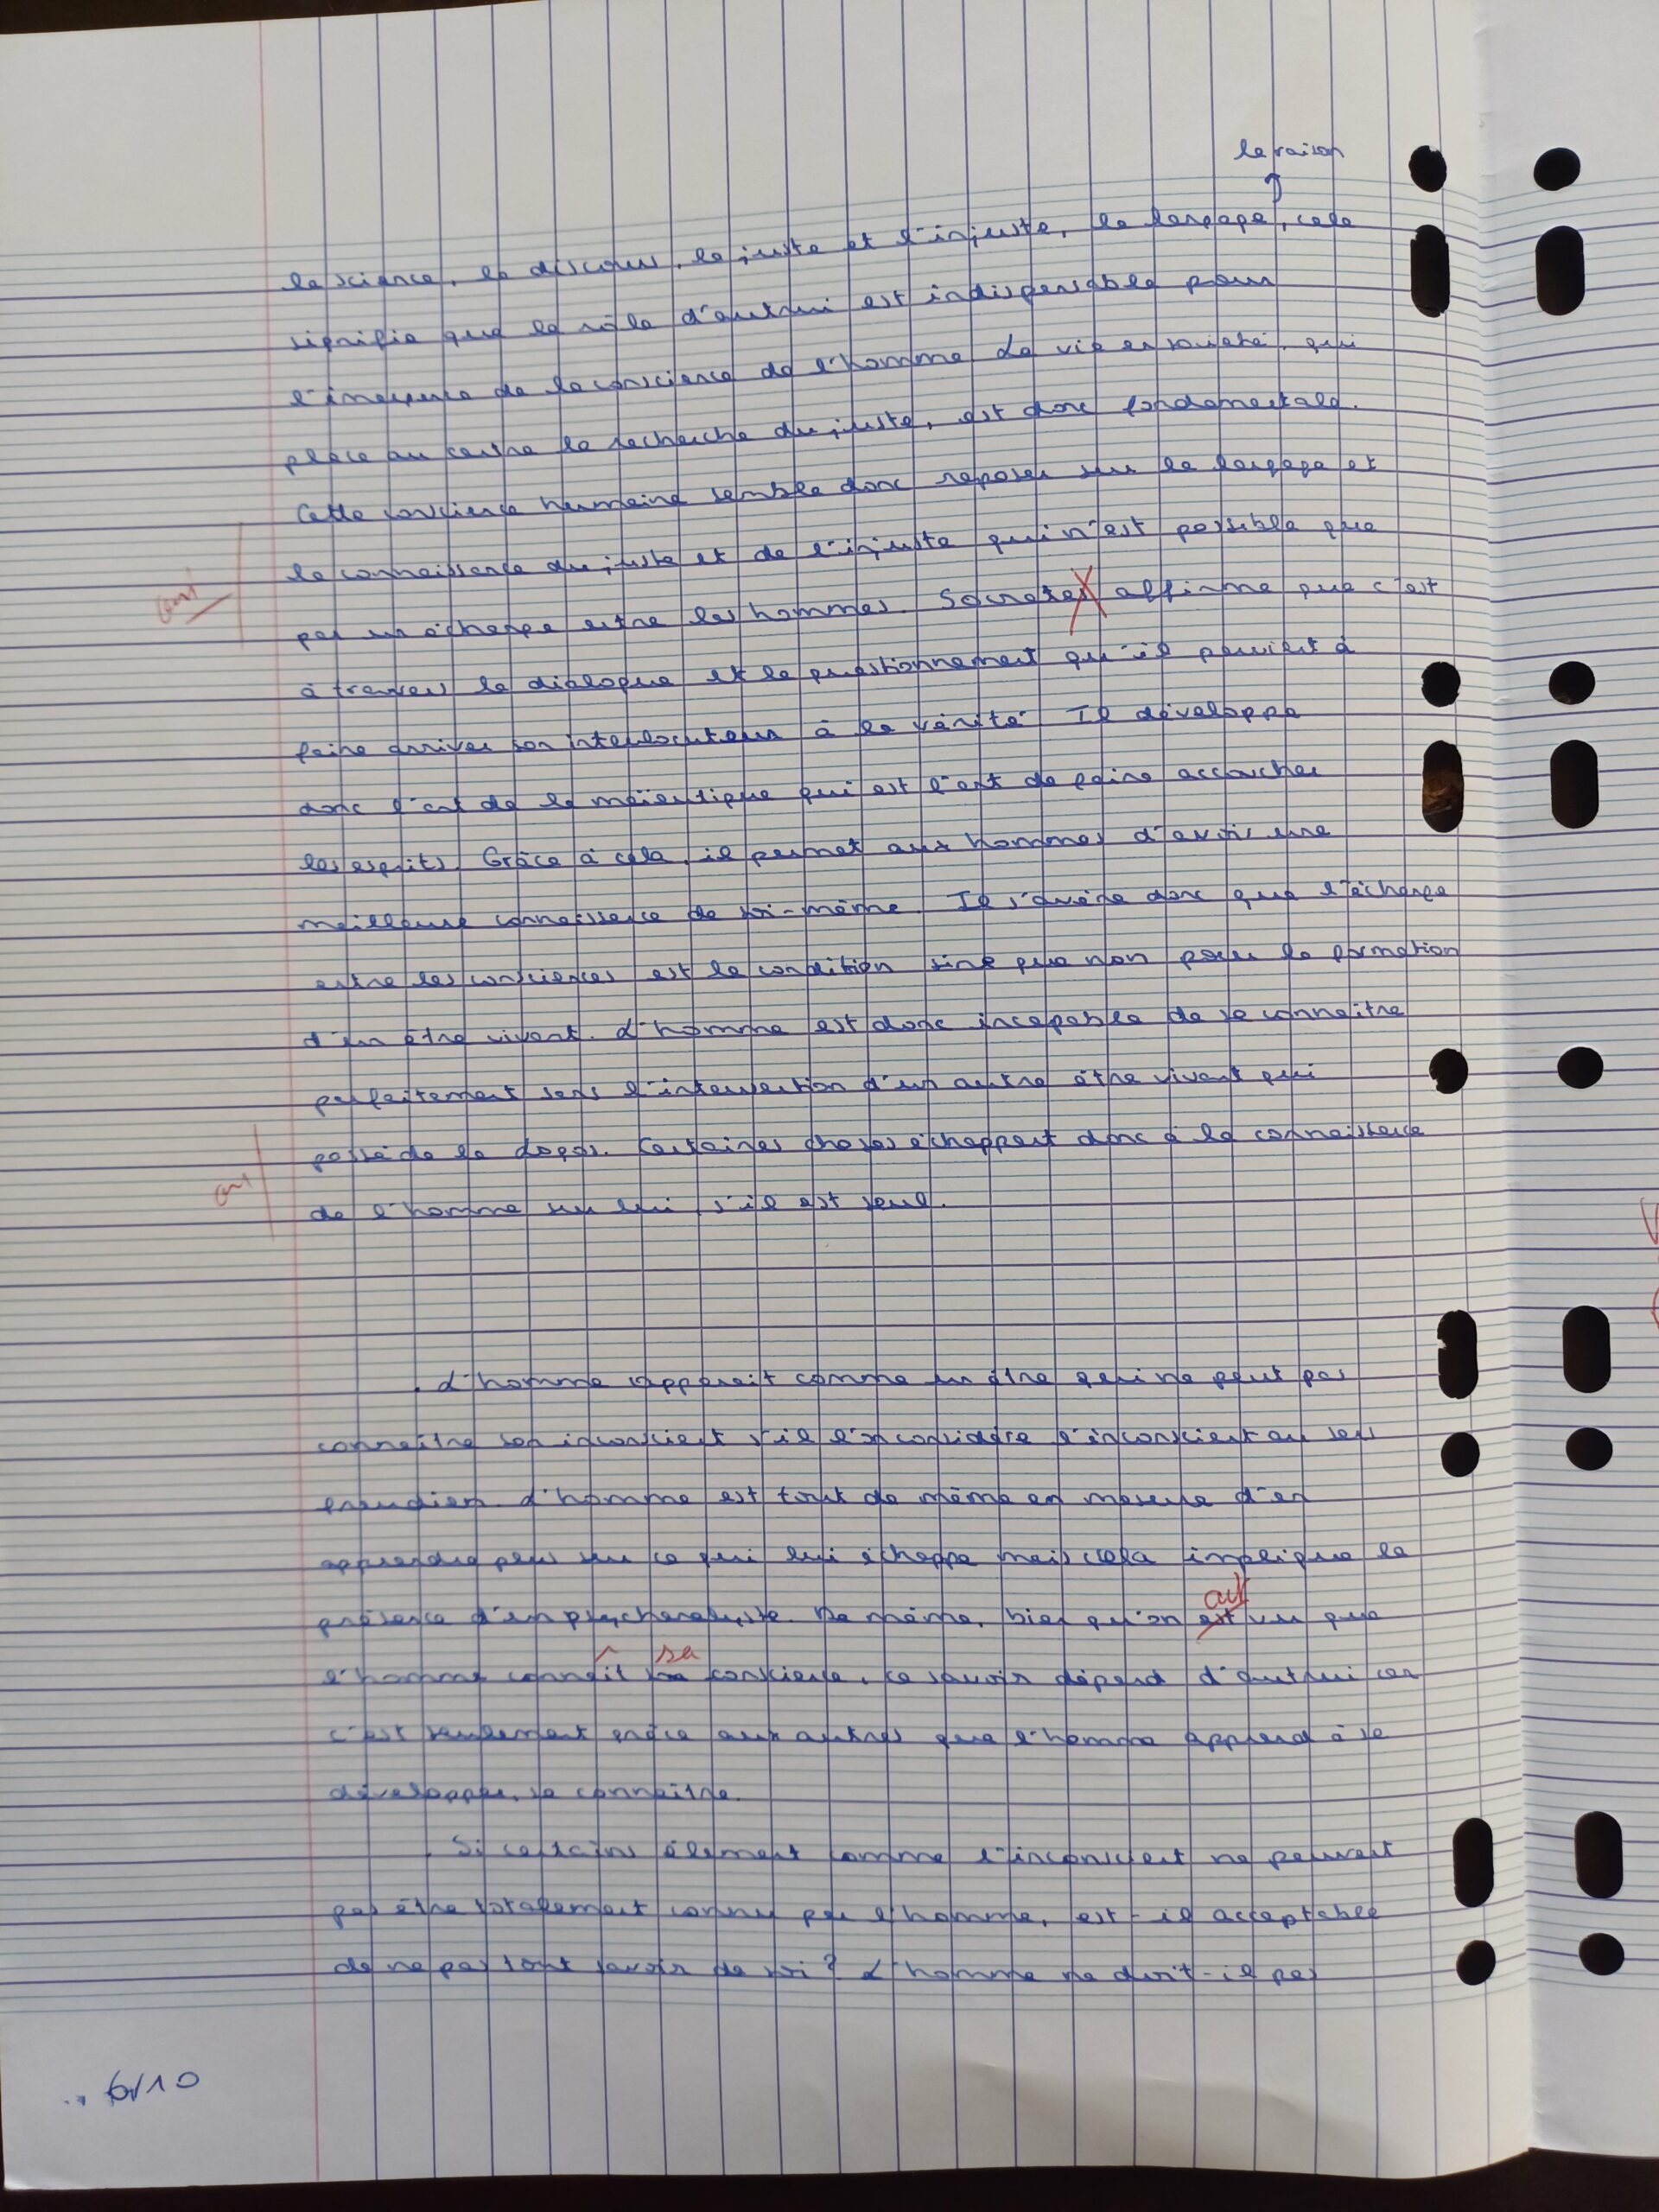 la raison
↑
la science, le discours, le juste et l'injuste, le langage, cela
signifie que le rôle d'autrui est indispensable pour
l'inexpence de la conscience de l'homme. La vie en société, qui
place au centre la recherche du juste, est donc fondamentale.
Cette conscience humaine semble donc reposer sur le langage et
la connaissance du juste et de l'injuste qui n'est possible que
oui
par un échange entre les hommes. Socrates affirme que c'est
à travers le dialogue et le questionnement qu'il parvient à
faire arriver son interlocuteur à la vérité. Il développe
donc l'art de la maïeutique qui est l'art de faire accoucher
les esprits. Grâce à cela, il permet aux hommes d'avoir une
meilleure connaissance de soi-même. Il s'avère donc que l'échange
entre les consciences est la condition sine que non pour la formation
d'un être vivant. L'homme est donc incapable de se connaître
parfaitement sans l'intervention d'un autre être vivant qui
possède le logos. Certaines choses échappent donc à la connaissance
oui
de l'homme sur lui, s'il est seul.
L'homme apparait comme un être qui ne peut pas
connaître son inconscient s'il l'on considère l'inconscient au sens
freudien. L'homme est tout de même en mesure d'en
apprendre plus sur ce qui lui échappe mais cela implique la
ait
présence d'un psychanalyste. De même, bien qu'on est vu que
^ sa
l'homme connait conscience, ce savoir dépend d'autrui car
c'est seulement grâce aux autres que l'homme apprend à se
développer, se connaître.
Si certains élément comme l'inconscient ne peuvent
pas être totalement connu par l'homme, est-il acceptable
de ne pas tout savoir de soi ? L'homme ne doit-il pas
6/10